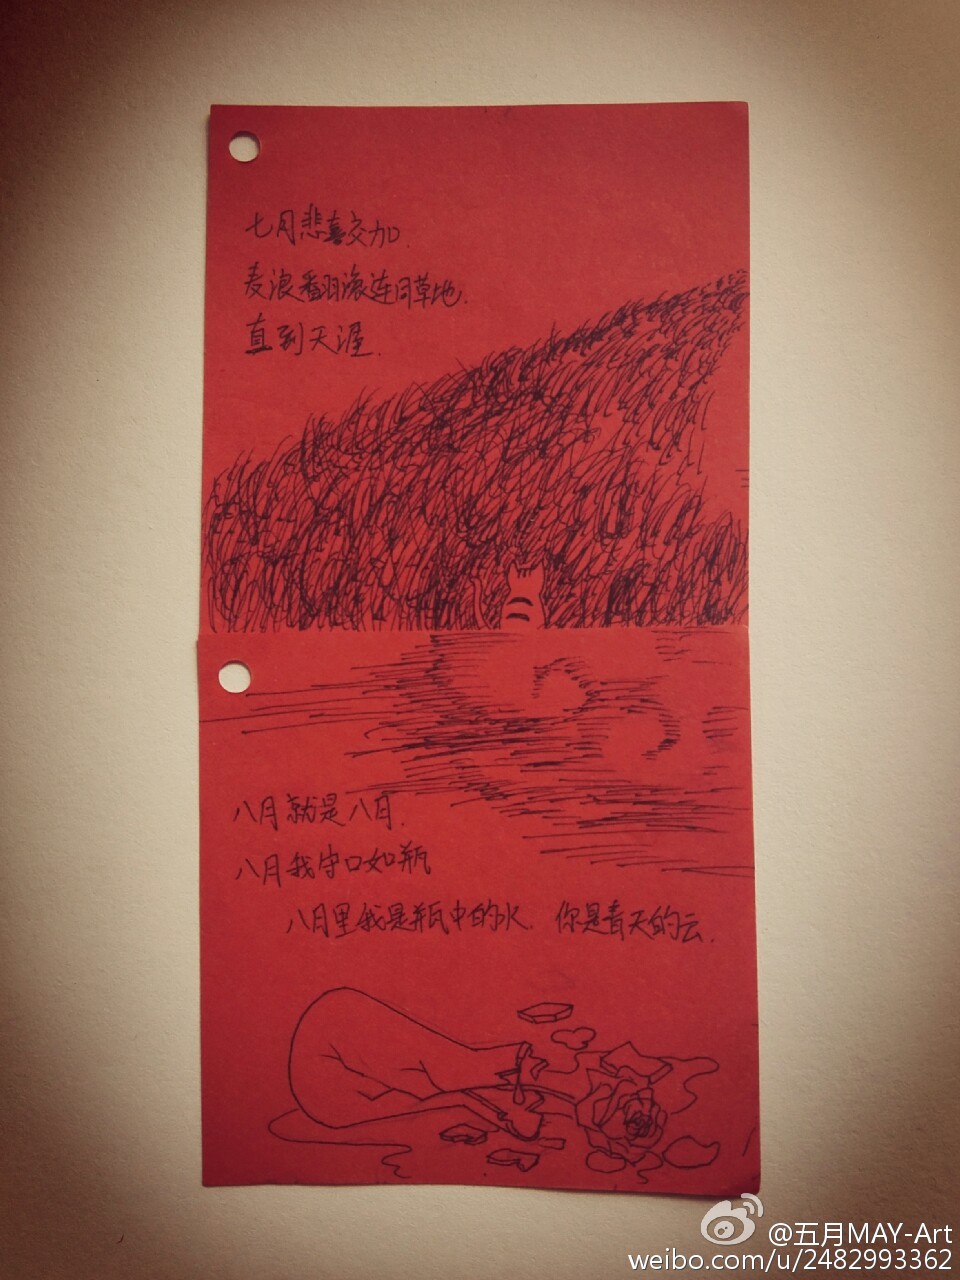 七月悲喜交加.
麦浪翻滚连同草地.
直到天涯.
八月就是八月.
八月我守口如瓶
八月里我是瓶中的水. 你是青天的云.
@五月MAY-Art
weibo.com/u/2482993362